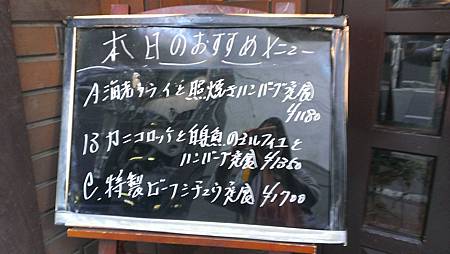 本日のおすすめメニュー
A 海老フライと照焼きハンバーグ定食
¥1180
B カニコロッケと白身魚のミルフィユと
ハンバーグ定食 ¥1380
C 特製ビーフシチュウ定食 ¥1700